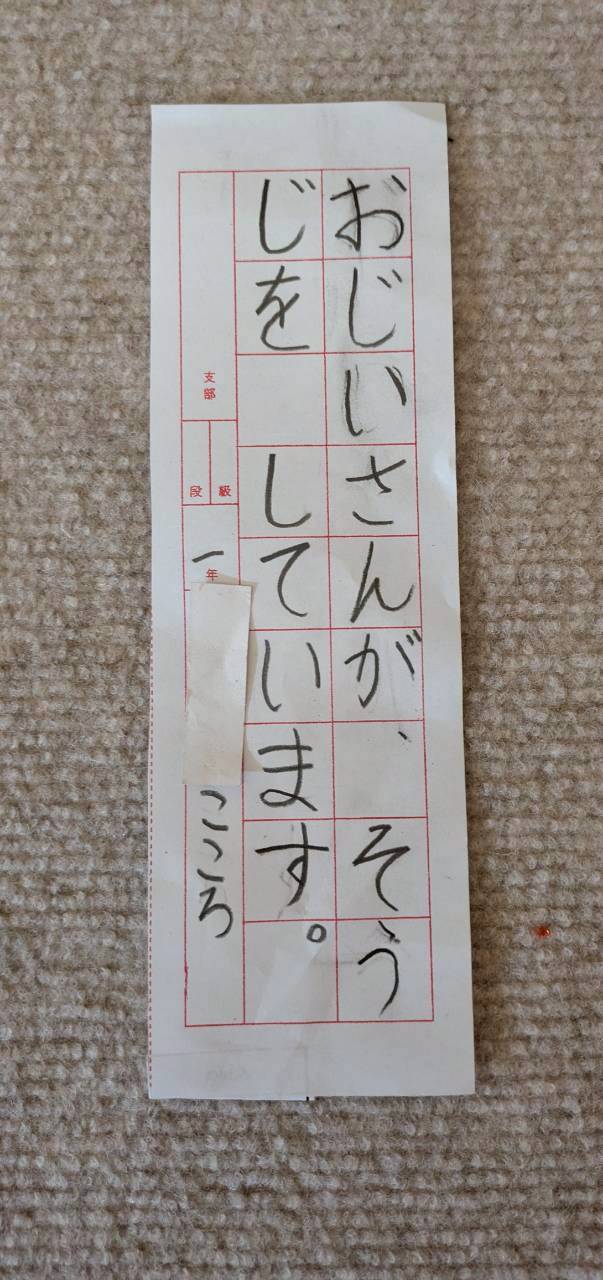 おじいさんが、そう
じを しています。
支部
段 級
一年
こころ